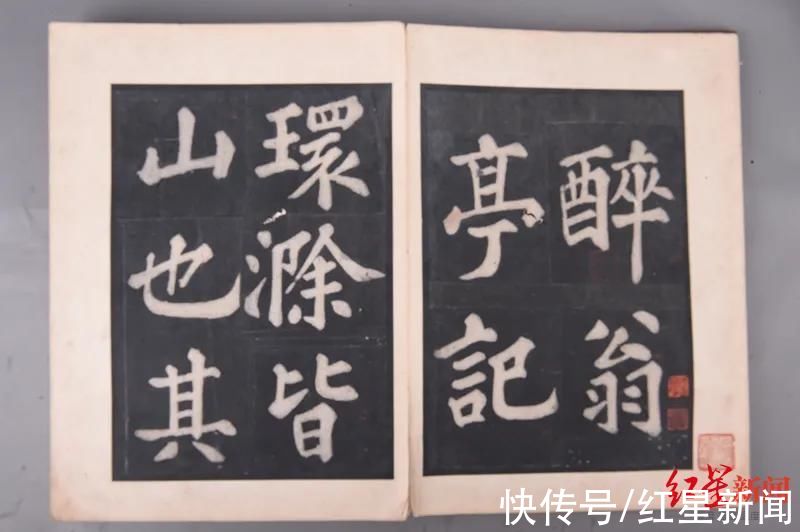 醉翁
亭記
環滁皆
山也其
红星新闻
快传号/红星新闻